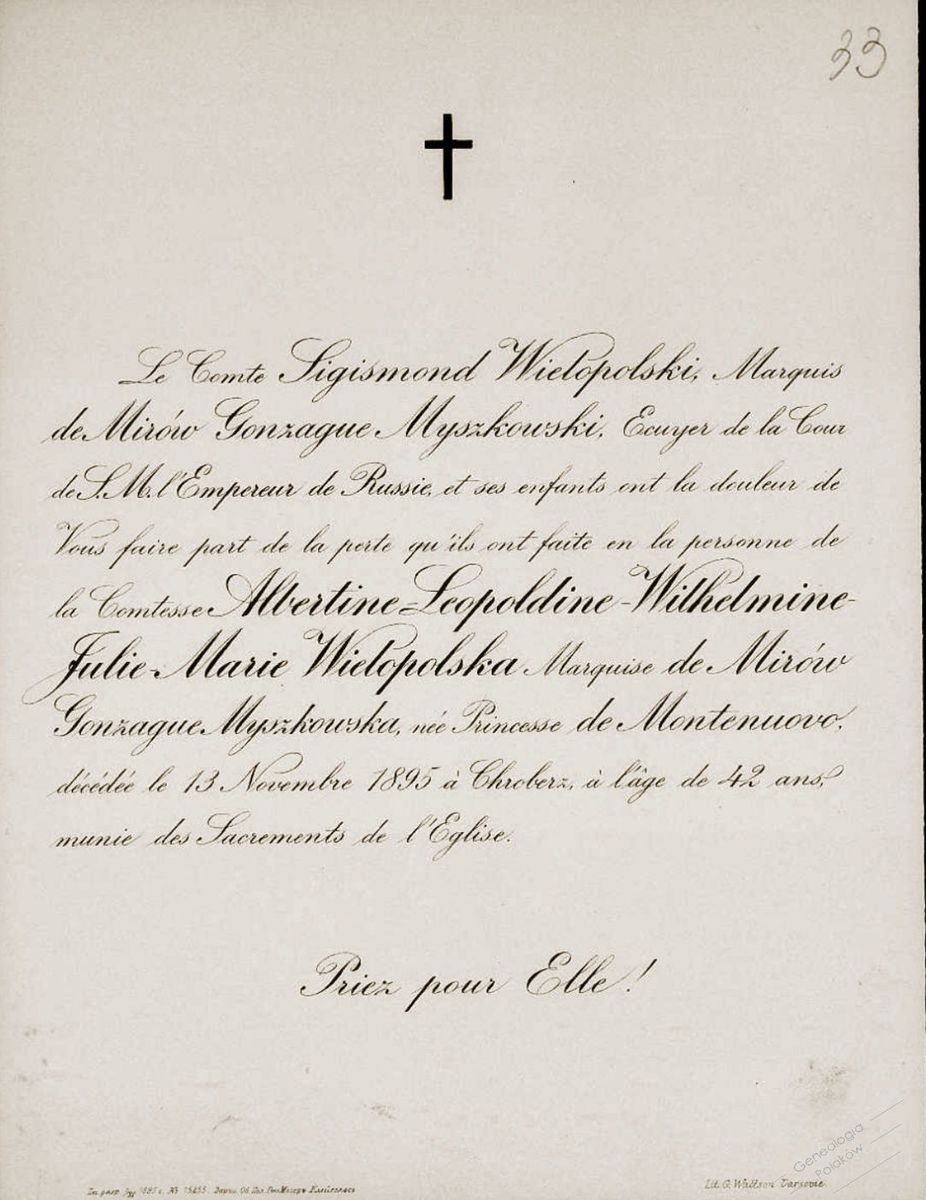 33
Le Comte Sigismond Wielopolski, Marquis
de Mirów Gonzague Myszkowski, Ecuyer de la Cour
de S.M. l'Empereur de Russie, et ses enfants ont la douleur de
Vous faire part de la perte qu'ils ont faite en la personne de
la Comtesse Albertine-Leopoldine-Wilhelmine-
Julie-Marie Wielopolska Marquise de Mirów
Gonzague Myszkowska, née Princesse de Montenuovo,
décédée le 13 Novembre 1895 à Chroberz, à l'âge de 42 ans,
munie des Sacrements de l'Eglise.
Priez pour Elle!
Genealogia
Polaków
1895 г. №
Lit. G. Wattson Varsovie.